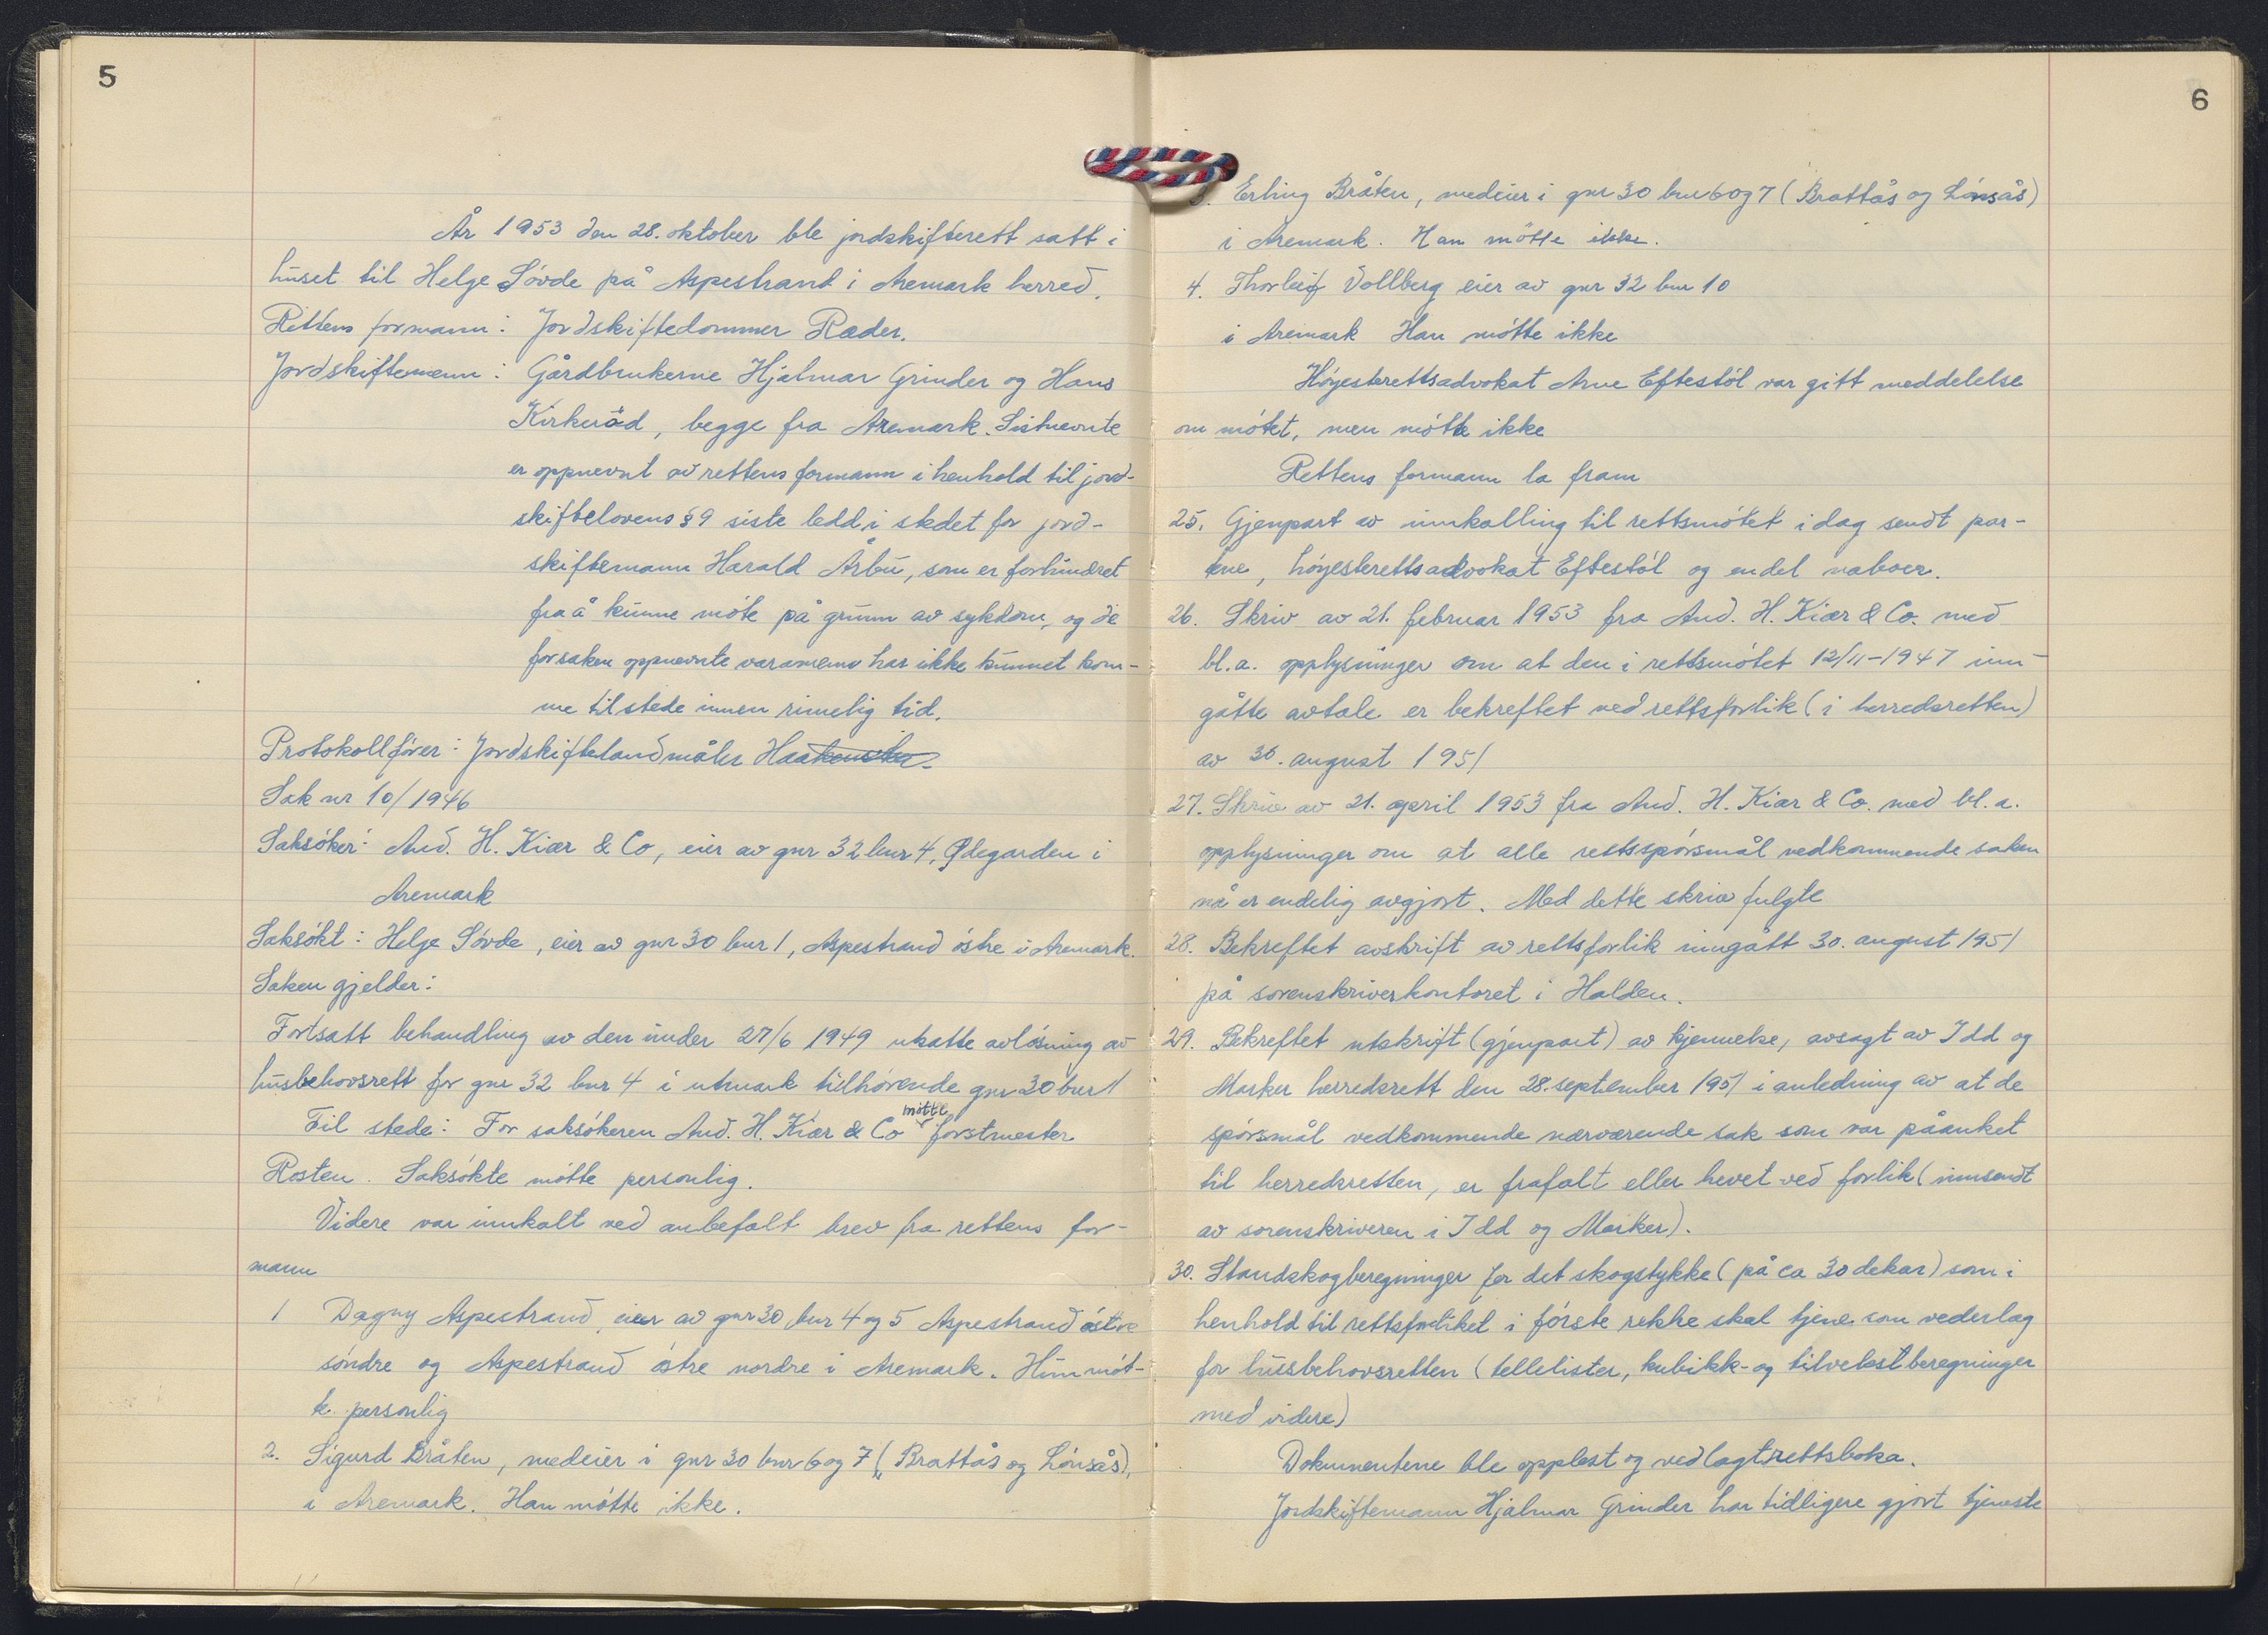 5
År 1953 den 28. oktober ble jordskifterett satt i
huset til Helge Sövde på Aspestrand i Aremark herred.
Rettens formann: Jordskiftedommer Ræder.
Jordskiftemenn: Gårdbrukerne Hjalmar Grinder og Hans
Kirkeröd, begge fra Aremark. Sistnevnte
er oppnevnt av rettens formann i henhold til jord-
skiftelovens § 9 siste ledd i stedet for jord-
skiftemann Harald Årbu, som er forhindret
fra å kunne möte på grunn av sykdom, og de
for saken oppnevnte varamenn har ikke kunnet kom-
me tilstede innen rimelig tid.
Protokollförer: Jordskiftelandmåler
Sak nr 10/1946
Saksöker: And. H. Kiær & Co, eier av gnr 32 bnr 4, Ødegarden i
Aremark
Saksökt: Helge Sövde, eier av gnr 30 bnr 1, Aspestrand östre i Aremark.
Saken gjelder:
Fortsatt behandling av den under 27/6 1949 utsatte avlösning av
husbehovsrett for gnr 32 bnr 4 i utmark tilhörende gnr 30 bnr 1
Til stede: For saksökeren And. H. Kiær & Co mötte forstmester
Rosten. Saksökte mötte personlig.
Videre var innkalt ved anbefalt brev fra rettens for-
mann
1 Dagny Aspestrand, eier av gnr 30 bnr 4 og 5 Aspestrand östre
söndre og Aspestrand östre nordre i Aremark. Hun möt-
te personlig
2. Sigurd Bråten, medeier i gnr 30 bnr 6 og 7 (Brattås og Lönsås),
i Aremark. Han mötte ikke.
6
Erling Bråten, medeier i gnr 30 bnr 6 og 7 (Brattås og Lönsås)
i Aremark. Han mötte ikke.
4. Thorleif Vollberg eier av gnr 32 bnr 10
i Aremark Han mötte ikke
Höyesterettsadvokat Arne Eftestöl var gitt meddelelse
om mötet, men mötte ikke
Rettens formann la fram
25. Gjenpart av innkalling til rettsmötet i dag sendt par-
tene, höyesterettsadvokat Eftestöl og endel naboer.
26. Skriv av 21. februar 1953 fra And. H. Kiær & Co. med
bl.a. opplysninger om at den i rettsmötet 12/11-1947 inn-
gåtte avtale er bekreftet ved rettsforlik (i herredsretten)
av 30. august 1951
27. Skriv av 21. april 1953 fra And. H. Kiær & Co. med bl.a.
opplysninger om at alle rettsspörsmål vedkommende saken
nå er endelig avgjort. Med dette skriv fulgte
28. Bekreftet avskrift av rettsforlik inngått 30. august 1951
på sorenskriverkontoret i Halden.
29. Bekreftet utskrift (gjenpart) av kjennelse, avsagt av Idd og
Marker herredsrett den 28. september 1951 i anledning av at de
spörsmål vedkommende nærværende sak som var påanket
til herredsretten, er frafalt eller hevet ved forlik (innsendt
av sorenskriveren i Idd og Marker).
30. Standskogberegninger for det skogstykke (på ca 30 dekar) som i
henhold til rettsforliket i förste rekke skal tjene som vederlag
for husbehovsretten (tellelister, kubikk- og tilvekstberegninger
med videre)
Dokumentene ble opplest og vedlagt rettsboka.
Jordskiftemann Hjalmar Grinder har tidligere gjort tjeneste